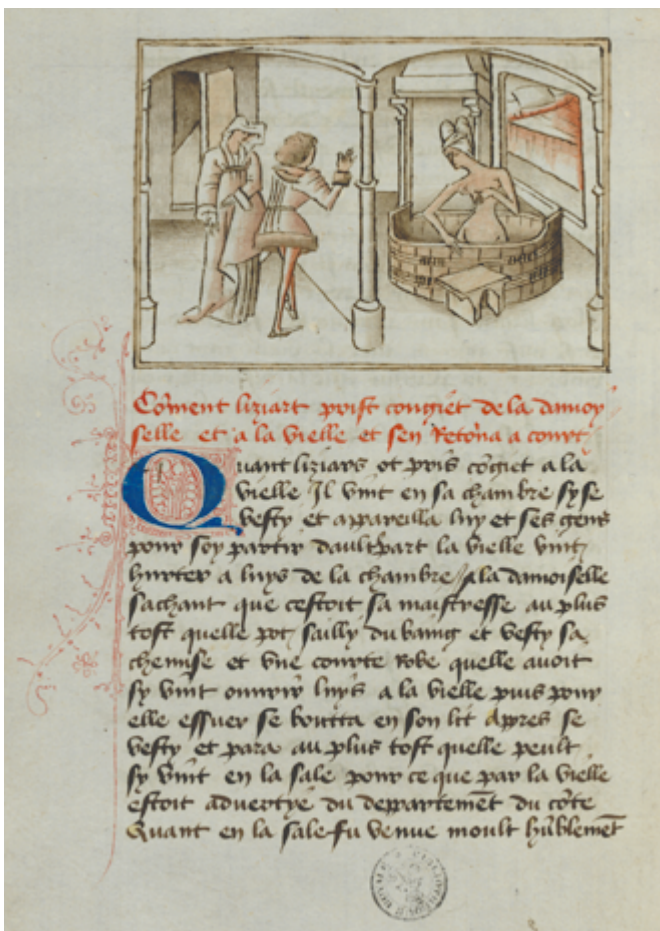 Co͞ment liziart prist congiet de la damoy
selle et a la vielle et sen Reto͞na a court
Quant liziars ot pris co͞giet a la
vielle Il vint en sa chambre sy se
vesty et appareilla luy et ses gens
pour soy partir daultrepart la vielle vint
hurter a luys de la chambre / la damoiselle
sachant que cestoit sa maistresse au plus
tost quelle pot sailly du baing et vesty sa
chemise et vne courte robe quelle auoit
sy vint ouurir luys a la vielle puis pour
elle essuer se boutta en son lit Apres se
vesty et para au plus tost quelle peult
sy vint en la sale pour ce que par la vielle
estoit aduertye du departeme͞t du co͞te
Quant en la sale fu venue moult hu͞bleme͞t